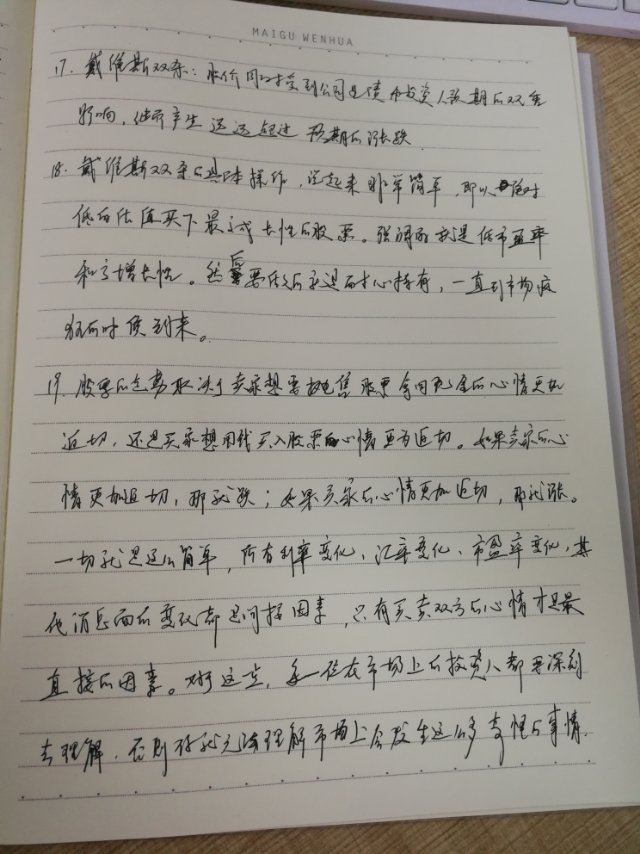 MAIGU WENHUA
17. 戴维斯双杀：股价同时受到公司业绩和投资人预期的双重
影响，继而产生远远超过预期的涨跌
18. 戴维斯双杀的具体操作，说起来非常简单，即以绝对
低的估值买下最具成长性的股票。强调的就是低市盈率
和高增长性。然后要做的就是耐心持有，一直到市场疯
狂的时候到来。
19. 股票的走势取决于卖家想要抛售股票拿回现金的心情更加
迫切，还是买家想用钱买入股票的心情更为迫切。如果卖家的心
情更加迫切，那就跌；如果买家的心情更加迫切，那就涨。
一切就是这么简单，所有利率变化、汇率变化、市盈率变化，其
他消息面的变化都是间接因素，只有买卖双方的心情才是最
直接的因素。对于这点，每一位在市场上的投资人都要深刻
去理解，否则你就无法理解市场上会发生这么多奇怪的事情.